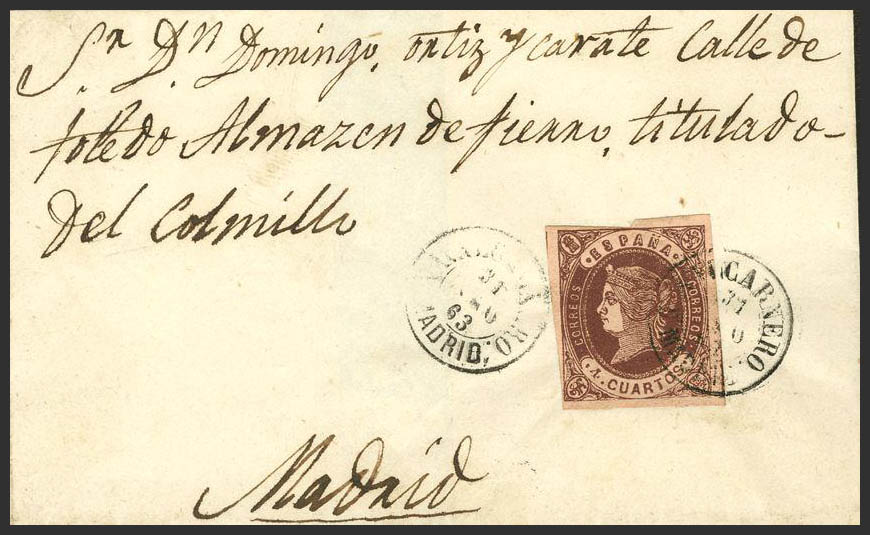 Sr. Dn. Domingo, ortiz ycarate Calle de
toledo Almazen de fierro, titulado-
del Colmillo
31
63
MADRID,
ESPAÑA
CORREOS
CORREOS
4 CUARTOS
CARNERO
31
Madrid